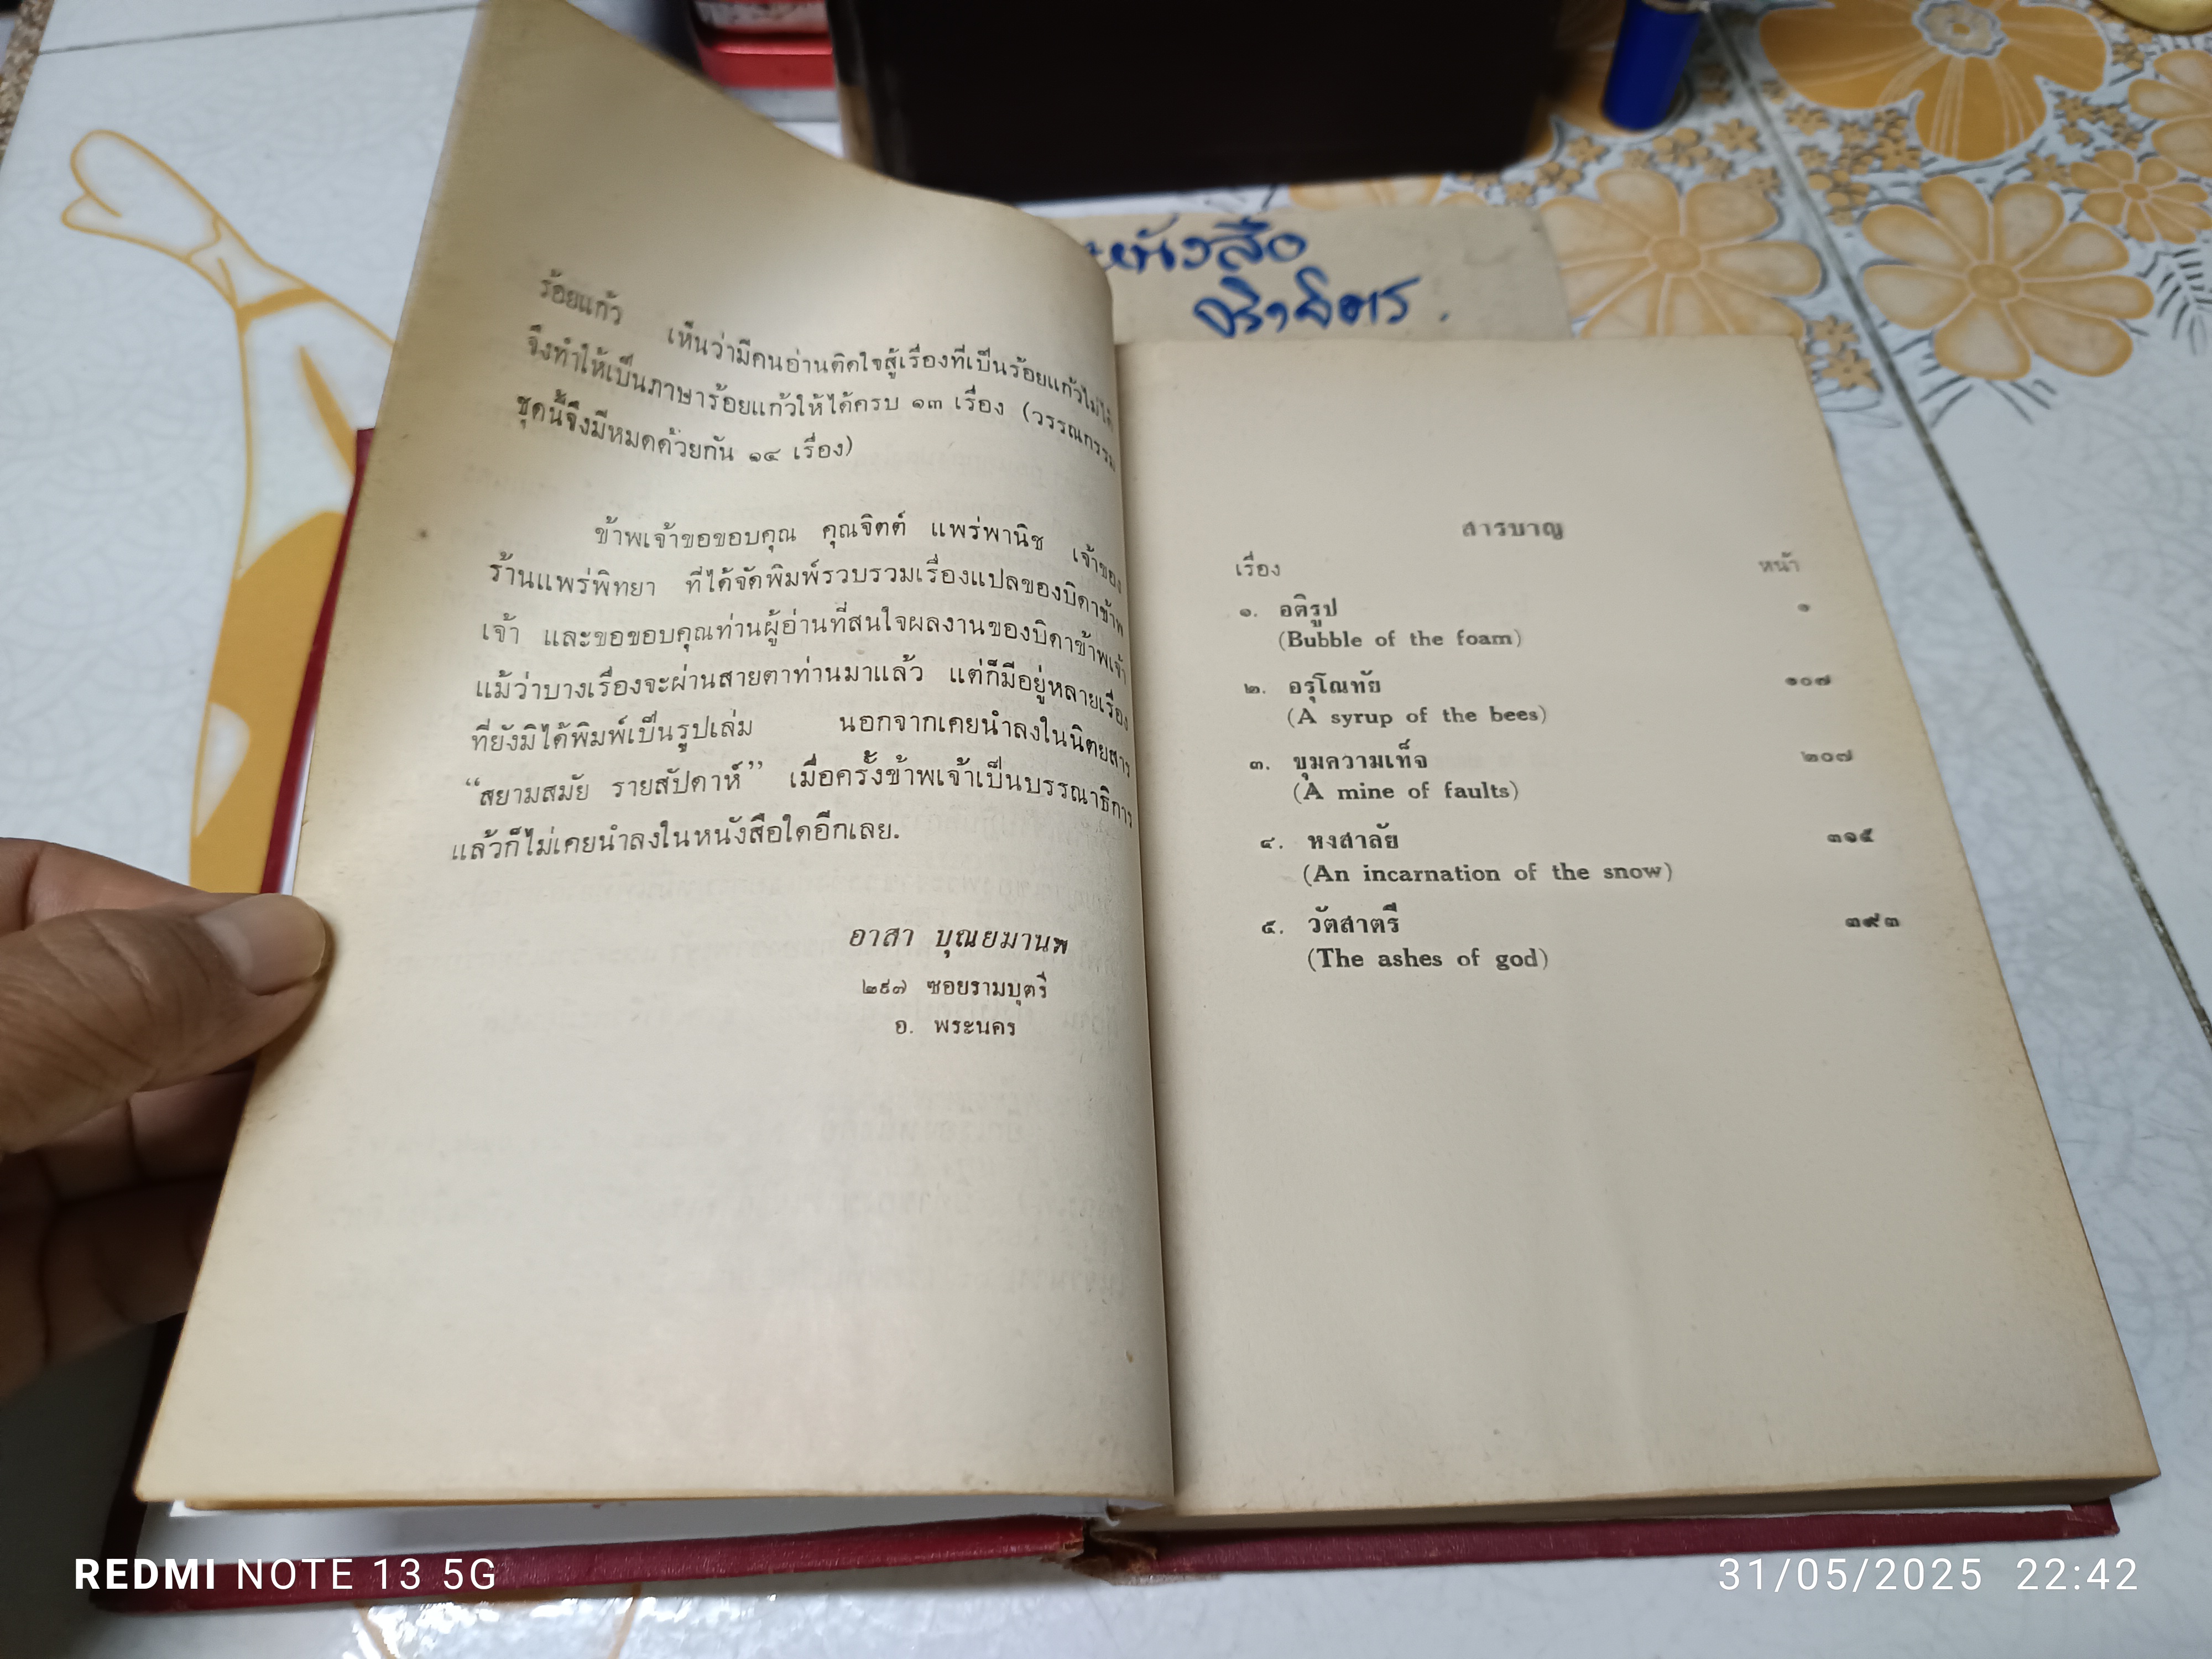 หนังสือ
ร้อยแก้ว เห็นว่ามีคนอ่านติดใจสู้เรื่องที่เป็นร้อยแก้วไม่ได้
จึงทำให้เป็นภาษาร้อยแก้วให้ได้ครบ ๑๓ เรื่อง (วรรณกรรม
ชุดนี้จึงมีหมดด้วยกัน ๑๔ เรื่อง)
ข้าพเจ้าขอขอบคุณ คุณจิตต์ แพร่พานิช เจ้าของ
ร้านแพร่พิทยา ที่ได้จัดพิมพ์รวบรวมเรื่องแปลของบิดาข้าพ
เจ้า และขอขอบคุณท่านผู้อ่านที่สนใจผลงานของบิดาข้าพเจ้า
แม้ว่าบางเรื่องจะผ่านสายตาท่านมาแล้ว แต่ก็มีอยู่หลายเรื่อง
ที่ยังมิได้พิมพ์เป็นรูปเล่ม นอกจากเคยนำลงในนิตยสาร
“สยามสมัย รายสัปดาห์” เมื่อครั้งข้าพเจ้าเป็นบรรณาธิการ
แล้วก็ไม่เคยนำลงในหนังสือใดอีกเลย.
อาสา บุณยมานพ
๒๙๗ ซอยรามบุตรี
อ. พระนคร
สารบาญ
เรื่อง หน้า
๑. อติรูป ๑
(Bubble of the foam)
๒. อรุโณทัย ๑๐๗
(A syrup of the bees)
๓. ขุมความเท็จ ๒๐๗
(A mine of faults)
๔. หงสาลัย ๓๑๕
(An incarnation of the snow)
๕. วัตสาตรี ๓๙๓
(The ashes of god)
REDMI NOTE 13 5G
31/05/2025 22:42